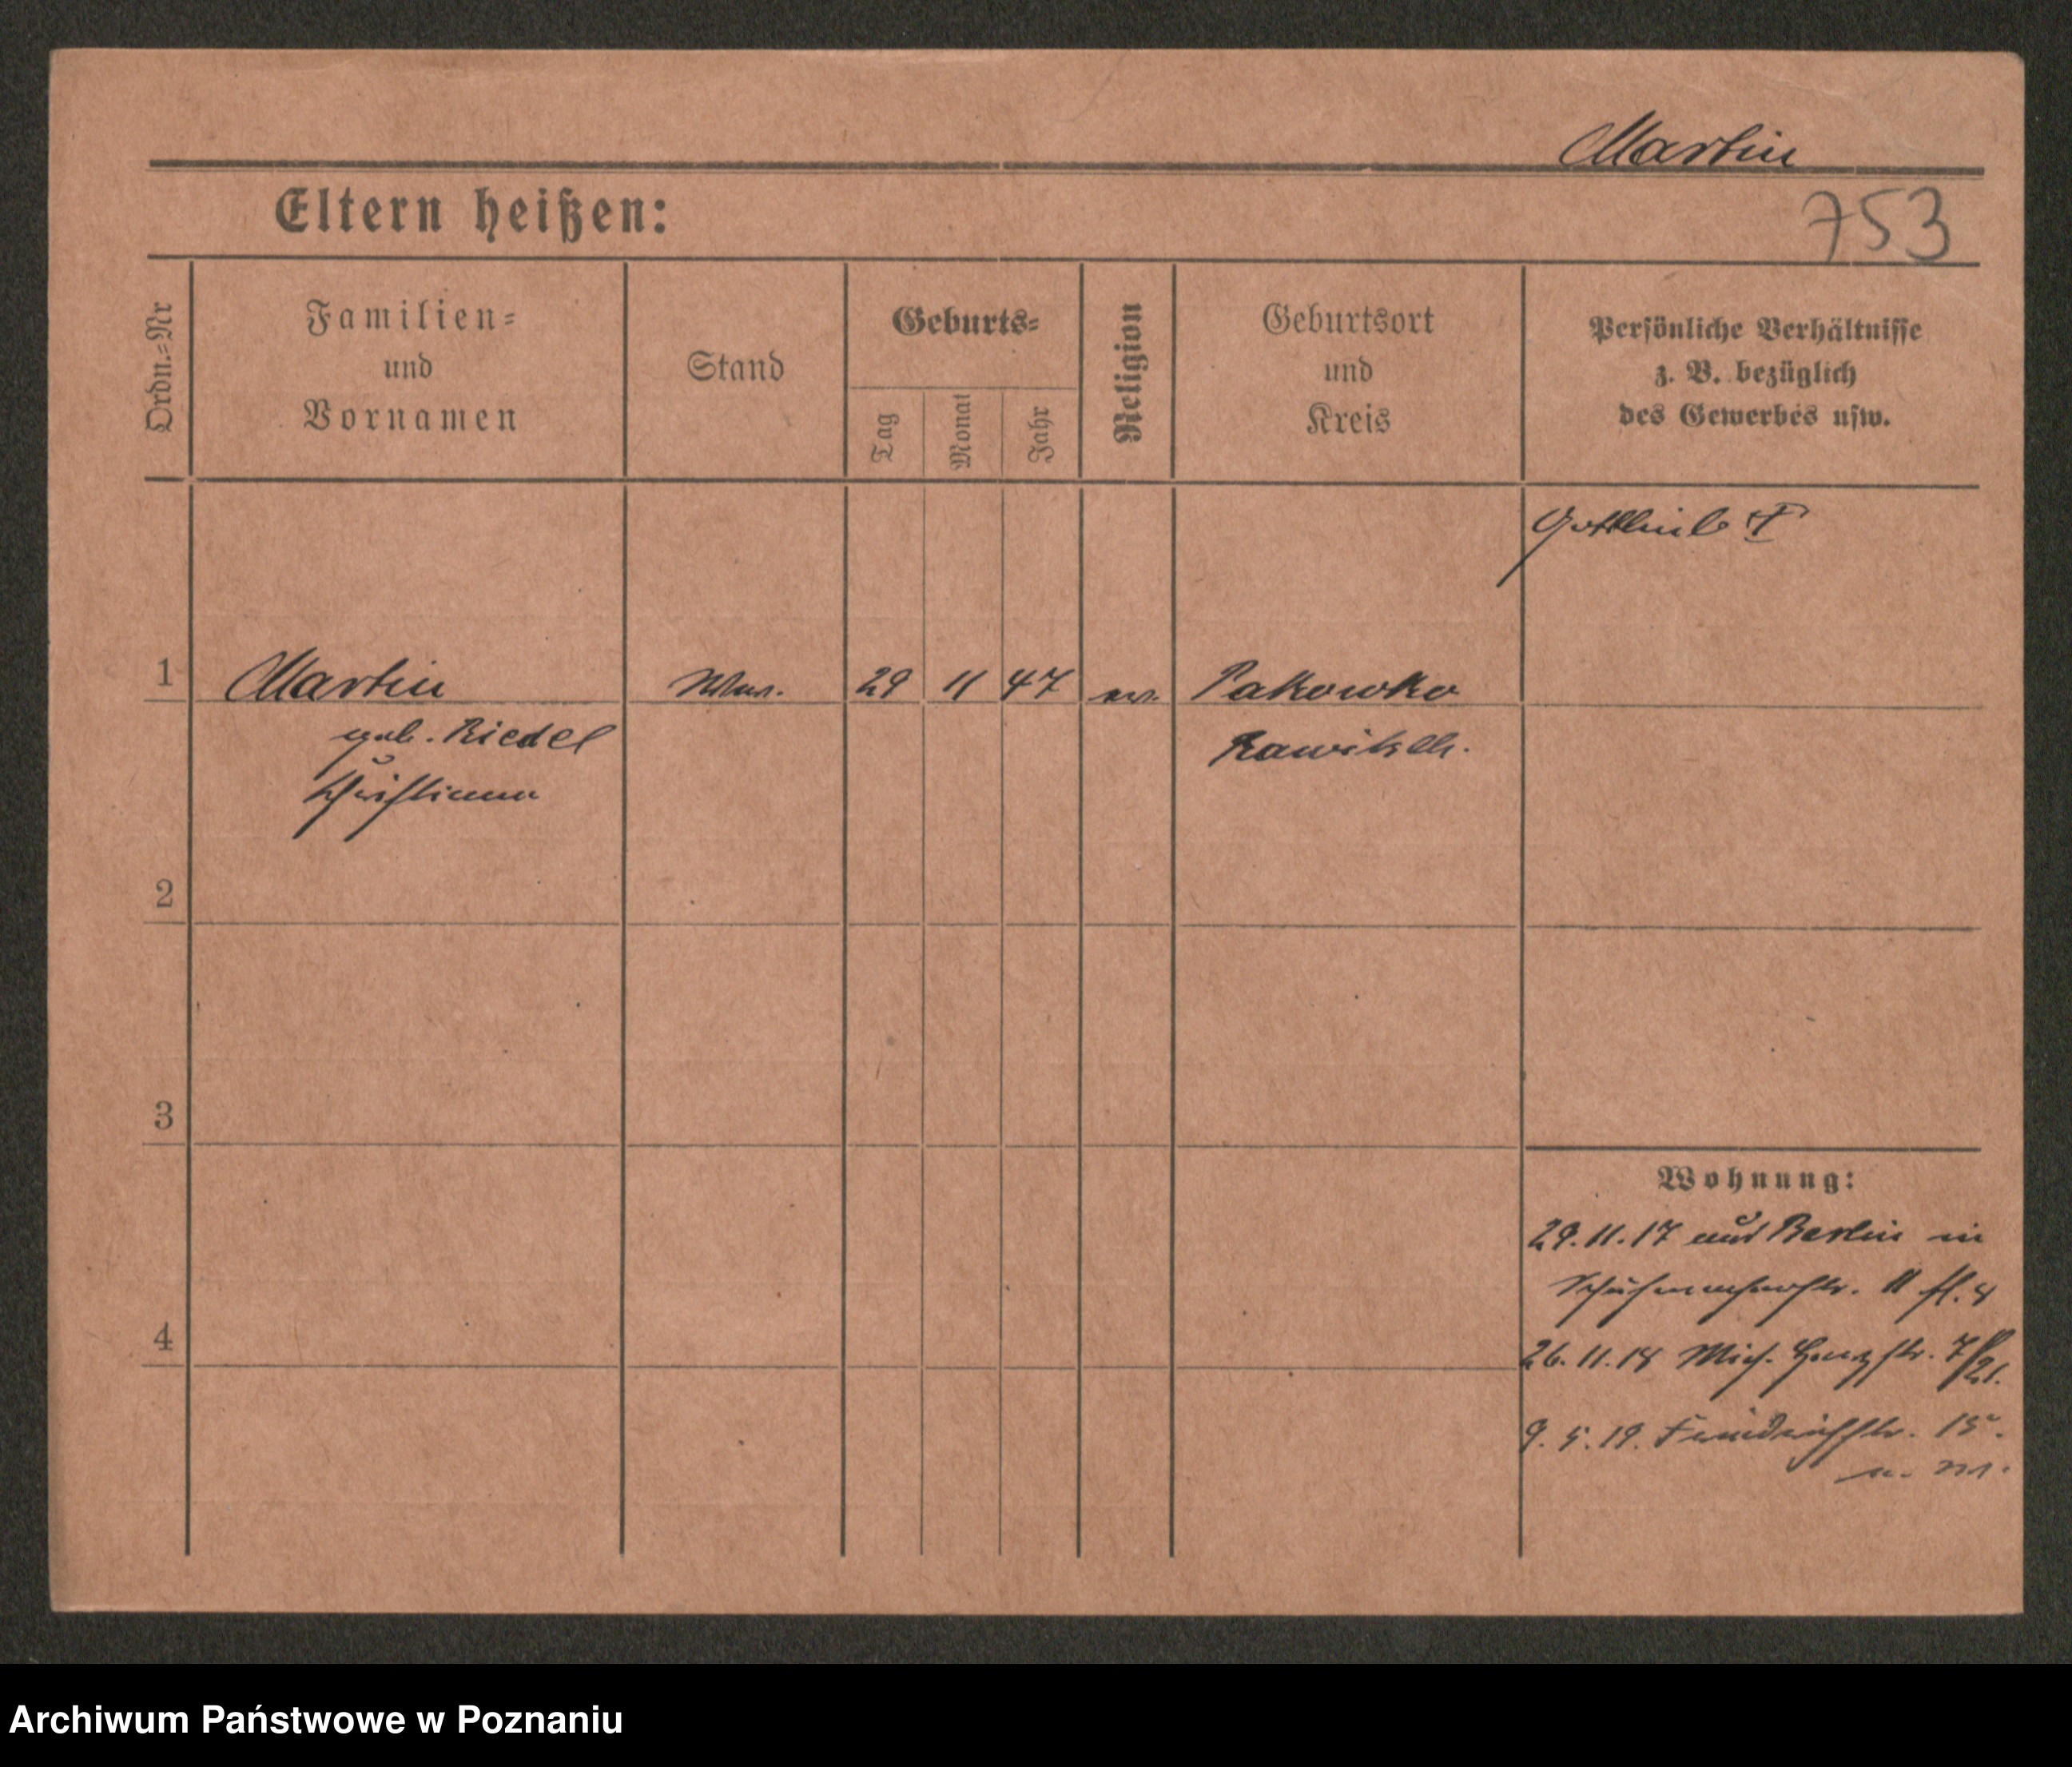 Martin
Eltern heißen:
753
Ordn.=Nr
Familien=
und
Vornamen
Stand
Geburts=
Tag
Monat
Jahr
Religion
Geburtsort
und
Kreis
Persönliche Verhältnisse
z. B. bezüglich
des Gewerbes usw.
Gottlieb †
1 Martin Wwe. 29 11 47 ev. Pakowko
geb. Riedel Rawitsch.
Christiane
2
3
4
Wohnung:
29.11.17 aus Berlin in
Schuhmacherstr. 11
26.11.18 7/21.
9.5.19. Friedrichstr. 15.
Archiwum Państwowe w Poznaniu